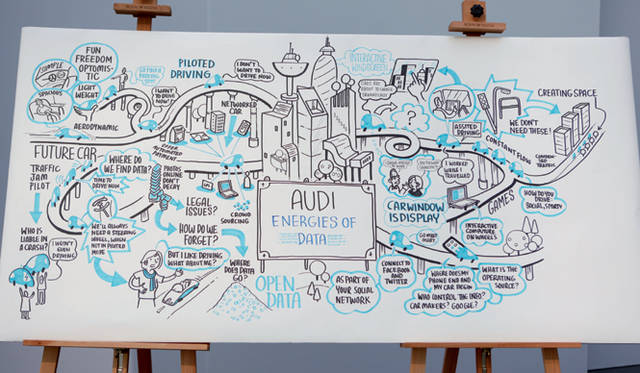 FUN
FREEDOM
OPTOMIS-
TIC
SIMPLE
SPACIOUS
LIGHT
WEIGHT
AERODYNAMIC
FUTURE CAR
PILOTED
DRIVING
I WANT
TO DRIVE
NOW!
I DON'T
WANT TO
DRIVE NOW
NETWORKED
CAR
INTERACTIVE
WINDSCREEN
?
ASSISTED
DRIVING
WE DON'T
NEED THESE!
CREATING SPACE
CONSTANT FLOW
TRAFFIC
PILOT
WHO IS
LIABLE IN
A CRASH?
I WASN'T
EVEN
DRIVING
WHERE DO
WE FIND DATA?
TIME TO
DRIVE NOW
WE'LL ALWAYS
NEED A
STEERING
WHEEL, WHEN
NOT IN PILOTED
MODE
PHOTOS
ONLINE
DON'T
DECAY
LEGAL
ISSUES?
CROWD
SOURCING
HOW DO WE
FORGET?
BUT I LIKE DRIVING
WHAT ABOUT ME?
WHERE
DOES DATA
GO?
OPEN
DATA
AUDI
ENERGIES OF
DATA
AS PART OF
YOUR SOCIAL
NETWORK
CAR WINDOW
IS DISPLAY
I WORKED
WHILE I
TRAVELLED
GAMES
HOW DO YOU
DRIVE
SOCIAL, SPORTY
INTERACTIVE
COMPUTER
ON WHEELS
CONNECT TO
FACEBOOK
AND
TWITTER
WHERE DOES MY
PHONE END AND
MY CAR BEGIN
WHAT IS THE
OPERATING
SOURCE?
WHO CONTROL THE INFO?
CAR MAKERS? GOOGLE?